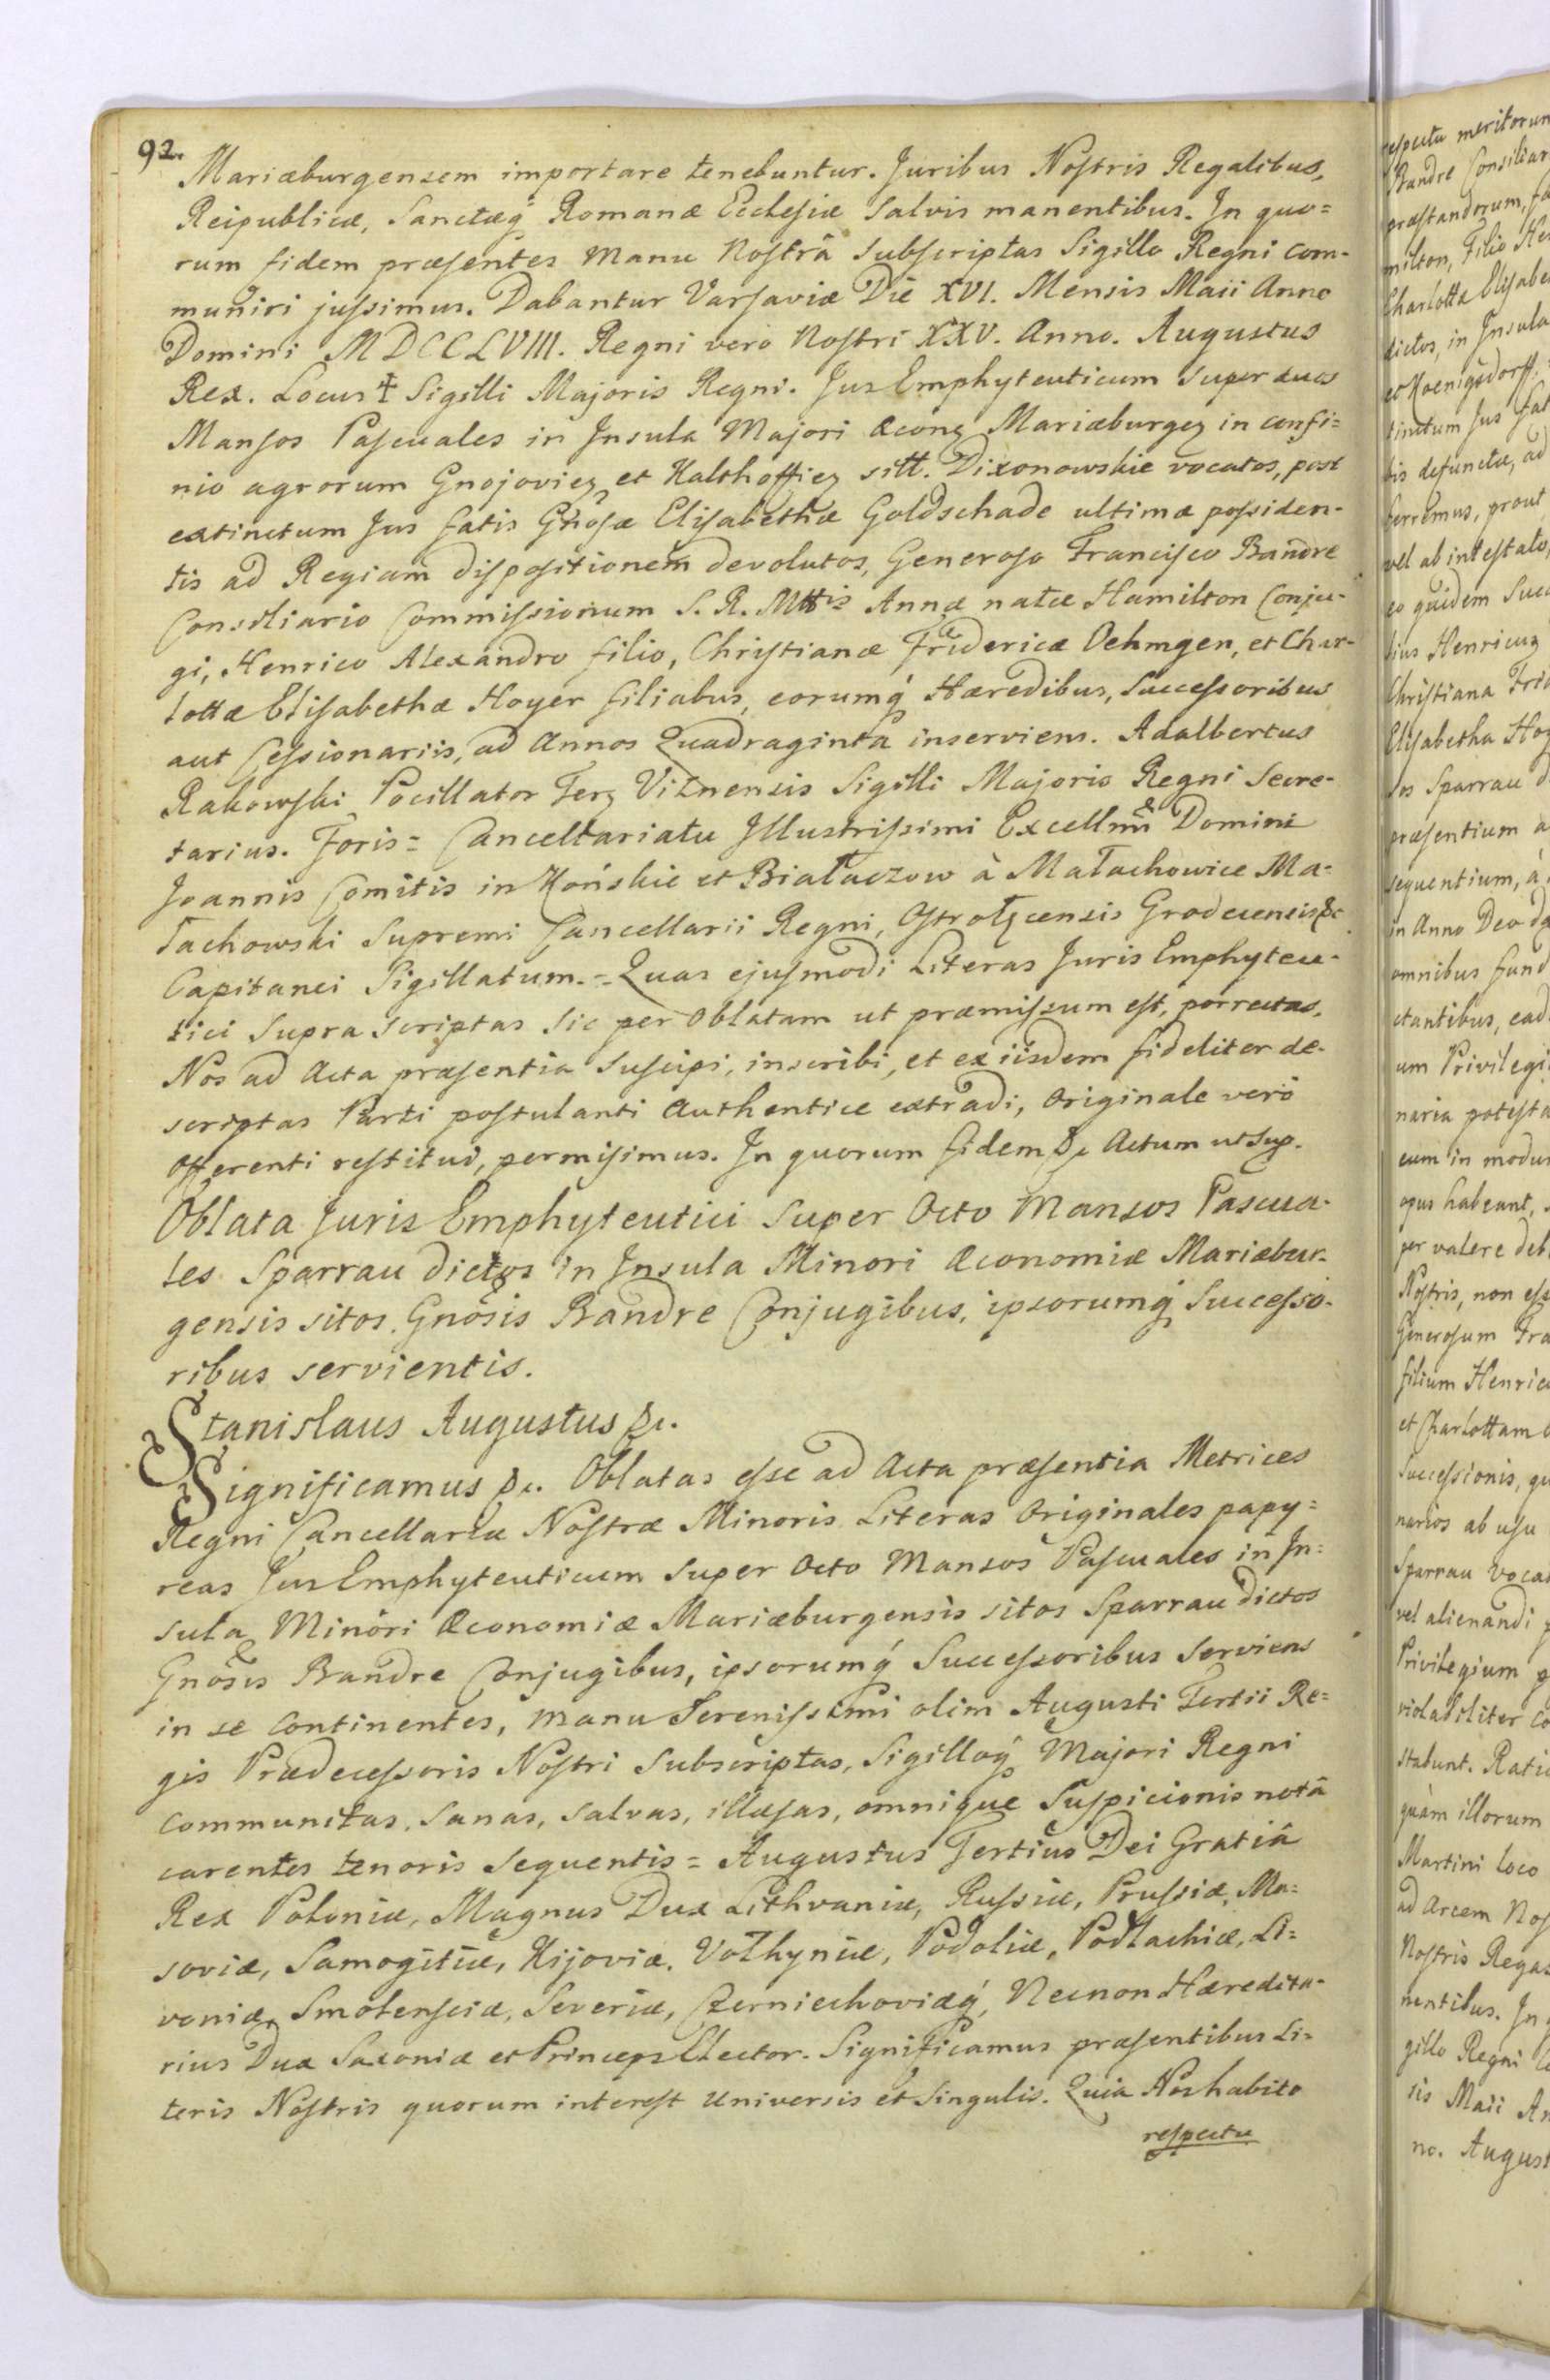 92.
Mariæburgensem importare tenebuntur. Juribus Nostris Regalibus,
Reipublicæ, Sanctæq́ Romanæ Ecclesiæ salvis manentibus. In quo=
rum fidem præsentes Manu Nostrâ subscriptas Sigillo Regni com-
muniri jussimus. Dabantur Varsaviæ Die XVI. Mensis Maii Anno
Domini MDCCLVIII. Regni vero Nostri XXV. Anno. Augustus
Rex. Locus ‡ Sigilli Majoris Regni. Jus Emphyteuticum super duos
Mansos Pascuales in Insula Majori Œcong Mariæburgeg in confi=
nio agrorum Gnojovieg et Kalthoffieg sitt. Dixonowskie vocatos, post
extinctum Jus fatis Gñosæ Elisabethæ Goldschade ultimæ possiden-
tis ad Regiam dispositionem devolutos, Generoso Francisco Bandre
Consiliario Commissionum S. R. Mttis Annæ natæ Hamilton Conju-
gi, Henrico Alexandro filio, Christianæ Fridericæ Oehmgen, et Char-
lottæ Elisabethæ Hoyer filiabus, eorumq́ Hæredibus, Successoribus
aut Cessionariis, ad Annos Quadraginta inserviens. Adalbertus
Rakowski Pocillator Terg Vilnensis Sigilli Majoris Regni Secre-
tarius. Foris = Cancellariatu Illustrissimi Excellmi Domini
Joannis Comitis in Końskie et Białaczow à Małachowice Ma=
łachowski Supremi Cancellarii Regni, Ostrołęcensis Grodecensis &c
Capitanei Sigillatum. = Quas ejusmodi Literas Juris Emphyteu-
tici supra scriptas sic per Oblatam ut præmissum est, porrectas,
Nos ad Acta præsentia suscipi, inscribi, et ex iisdem fideliter de-
scriptas Parti postulanti Authentice extradi, Originale verò
Offerenti restitui, permisimus. In quorum fidem &c Actum ut sup.
Oblata Juris Emphyteutici super Octo Mansos Pascua-
les Sparrau dictos in Insula Minori Œconomiæ Mariæbur-
gensis sitos, Gnosis Bandre Conjugibus, ipsorumq́ Successo-
ribus servientis.
Stanislaus Augustus &c.
Significamus &c. Oblatas esse ad Acta præsentia Metrices
Regni Cancellariæ Nostræ Minoris Literas Originales papy=
reas Jus Emphyteuticum super Octo Mansos Pascuales in In=
sula Minori Œconomiæ Mariæburgensis sitos Sparrau dictos
Gnosis Bandre Conjugibus, ipsorumq́ Successoribus Serviens
in se continentes, manu Serenissimi olim Augusti Tertii Re=
gis Prædecessoris Nostri Subscriptas, Sigilloq́ Majori Regni
communitas, Sanas, salvas, illæsas, omnique Suspicionis notâ
carentes tenoris sequentis = Augustus Tertius Dei Gratiâ
Rex Poloniæ, Magnus Dux Lithvaniæ, Russiæ, Prussiæ, Ma=
soviæ, Samogitiæ, Kijoviæ, Volhyniæ, Podoliæ, Podlachiæ, Li=
voniæ, Smolensciæ, Severiæ, Czerniechoviæq́, Necnon Hæredita-
rius Dux Saxoniæ et Princeps Elector. Significamus præsentibus Li=
teris Nostris quorum interest Universis et Singulis. Quia Nos habito
respectu
respectu meritorum
Bandre Consiliar
præstandorum, fa
milton, Filio He
Charlotta Elisabe
dictos, in Insula
et Koenigsdorff
tinctum Jus fat
tis defunctæ, ad
ferremus, prout
vel ab intestato,
eo quidem Succ
Henricus
Christiana Frid
Elisabetha Hoy
sos Sparrau d
præsentium a
sequentium, à
in Anno Deo da
omnibus fund
ctantibus, ead
um Privilegi
naria potesta
cum in modum
opus habeant,
per valere deb
Nostris, non ess
Generosum Fra
filium Henric
et Charlottam
Successionis, qu
narios ab usu
Sparrau voca
vel alienandi p
Privilegium p
violabiliter co
stabunt. Rati
quàm illorum
Martini loco
ad Arcem Nos
Nostris Rega
nentibus. In
gillo Regni
sis Maii An
no. August